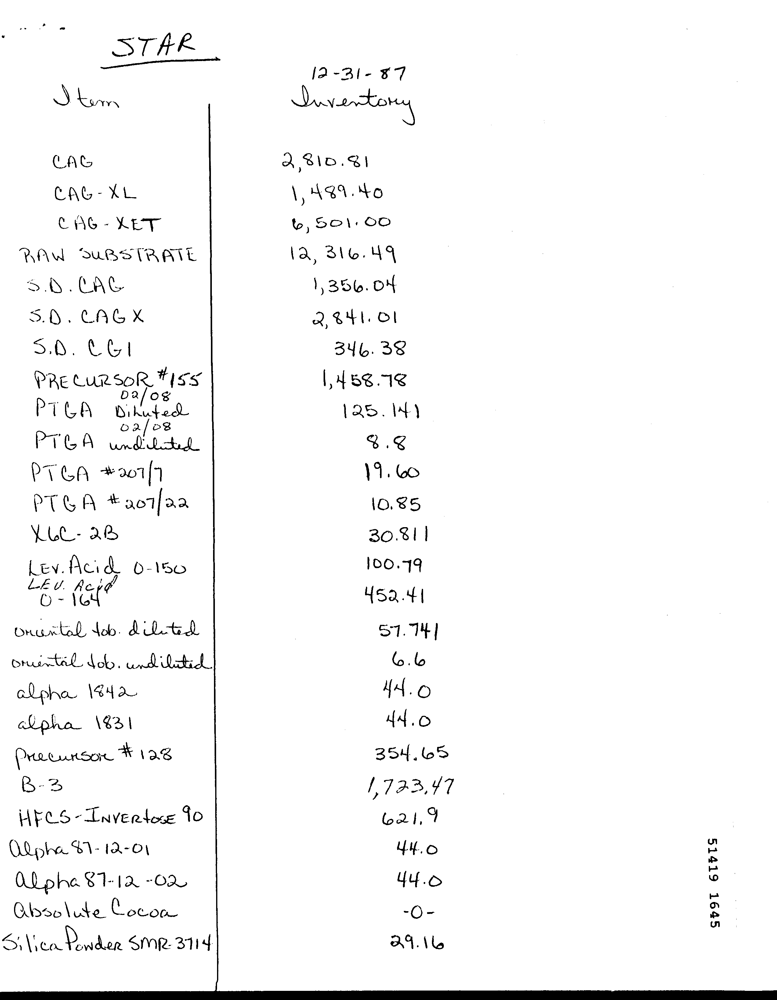 STAR
12-31-87
Item Inventory
CAG 2,810.81
CAG-XL 1,489.40
CAG-XET 6,501.00
RAW SUBSTRATE 12,316.49
S.D. CAG 1,356.04
S.D. CAGX 2,841.01
S.D. CGI 346.38
PRECURSOR #155 1,458.78
02/08
PTGA Diluted 125.141
02/08
PTGA undiluted 8.8
PTGA #207/7 19.60
PTGA #207/22 10.85
X6C-2B 30.811
LEV. Acid O-150 100.79
LEV. Acid
O-164 452.41
oriental tob. diluted 57.741
oriental tob. undiluted 6.6
alpha 1842 44.0
alpha 1831 44.0
precursor #128 354.65
B-3 1,723.47
HFCS-INVERTOSE 90 621.9
Alpha 87-12-01 44.0
Alpha 87-12-02 44.0
Absolute Cocoa -0-
Silica Powder SMR-3714 29.16
51419 1645